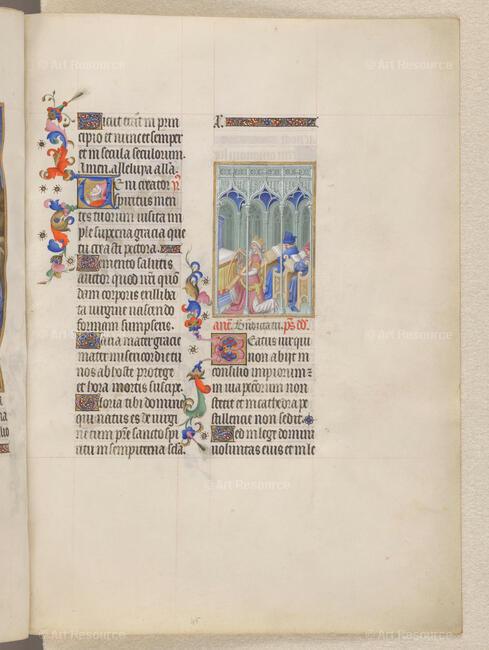 © Art Resource
© Art Resource
Sicut erat in prin
cipio et nunc et semper
et in secula seculorum.
amen. alleluya alla.
Veni creator
spiritus men
tes tuorum visita im
ple superna gracia que
tu creasti pectora.
Memento salutis
auctor quod nr̃i quo
dam corporis ex illiba
ta virgine nascendo
formam sumpseris.
Maria mater gracie
mater misericordie tu
nos ab hoste protege
et hora mortis suscipe.
Gloria tibi domine
qui natus es de virgi
ne cum pr̃e sancto spi
ritu in sempiterna secla.
añ. Benedicta tu. ps
Beatus vir qui
non abijt in
consilio impiorum
in via pccorum non
stetit et in cathedra pe
stilencie non sedit.
Sed in lege domini
voluntas eius et in le
© Art Resource
© Art Resource
© Art Resource